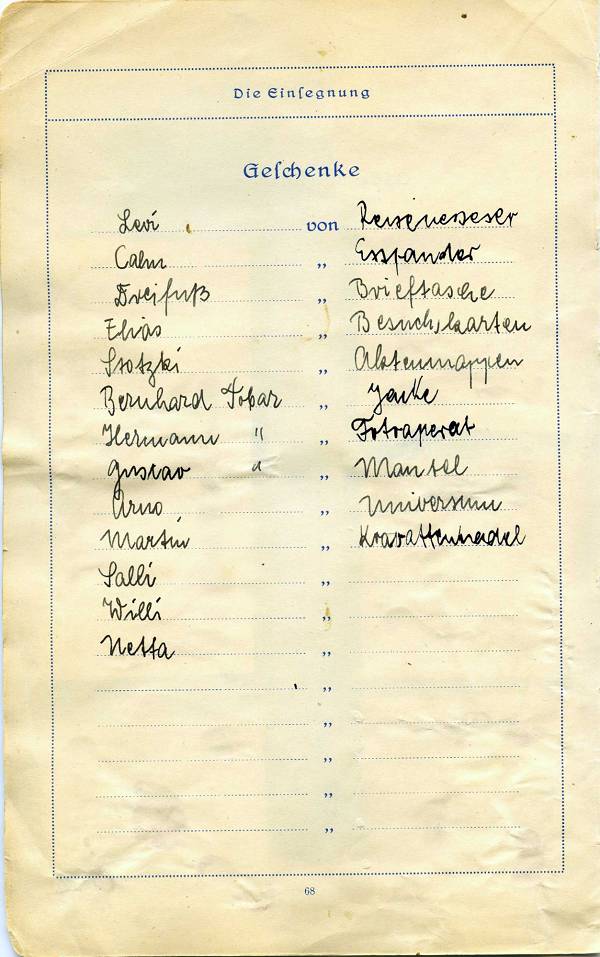 Die Einsegnung
Geschenke
Levi von Reisenesseser
Calm „ Exspander
Dreifuß „ Brieftasche
Elias „ Besuchskarten
Stotzki „ Aktenmappen
Bernhard Tobar „ Jacke
Hermann " „ Fotraperat
Gustav " „ Mantel
Arno „ Universum
Martin „ Kravattennadel
Salli „
Willi „
Netta „
„
„
„
„
„
68